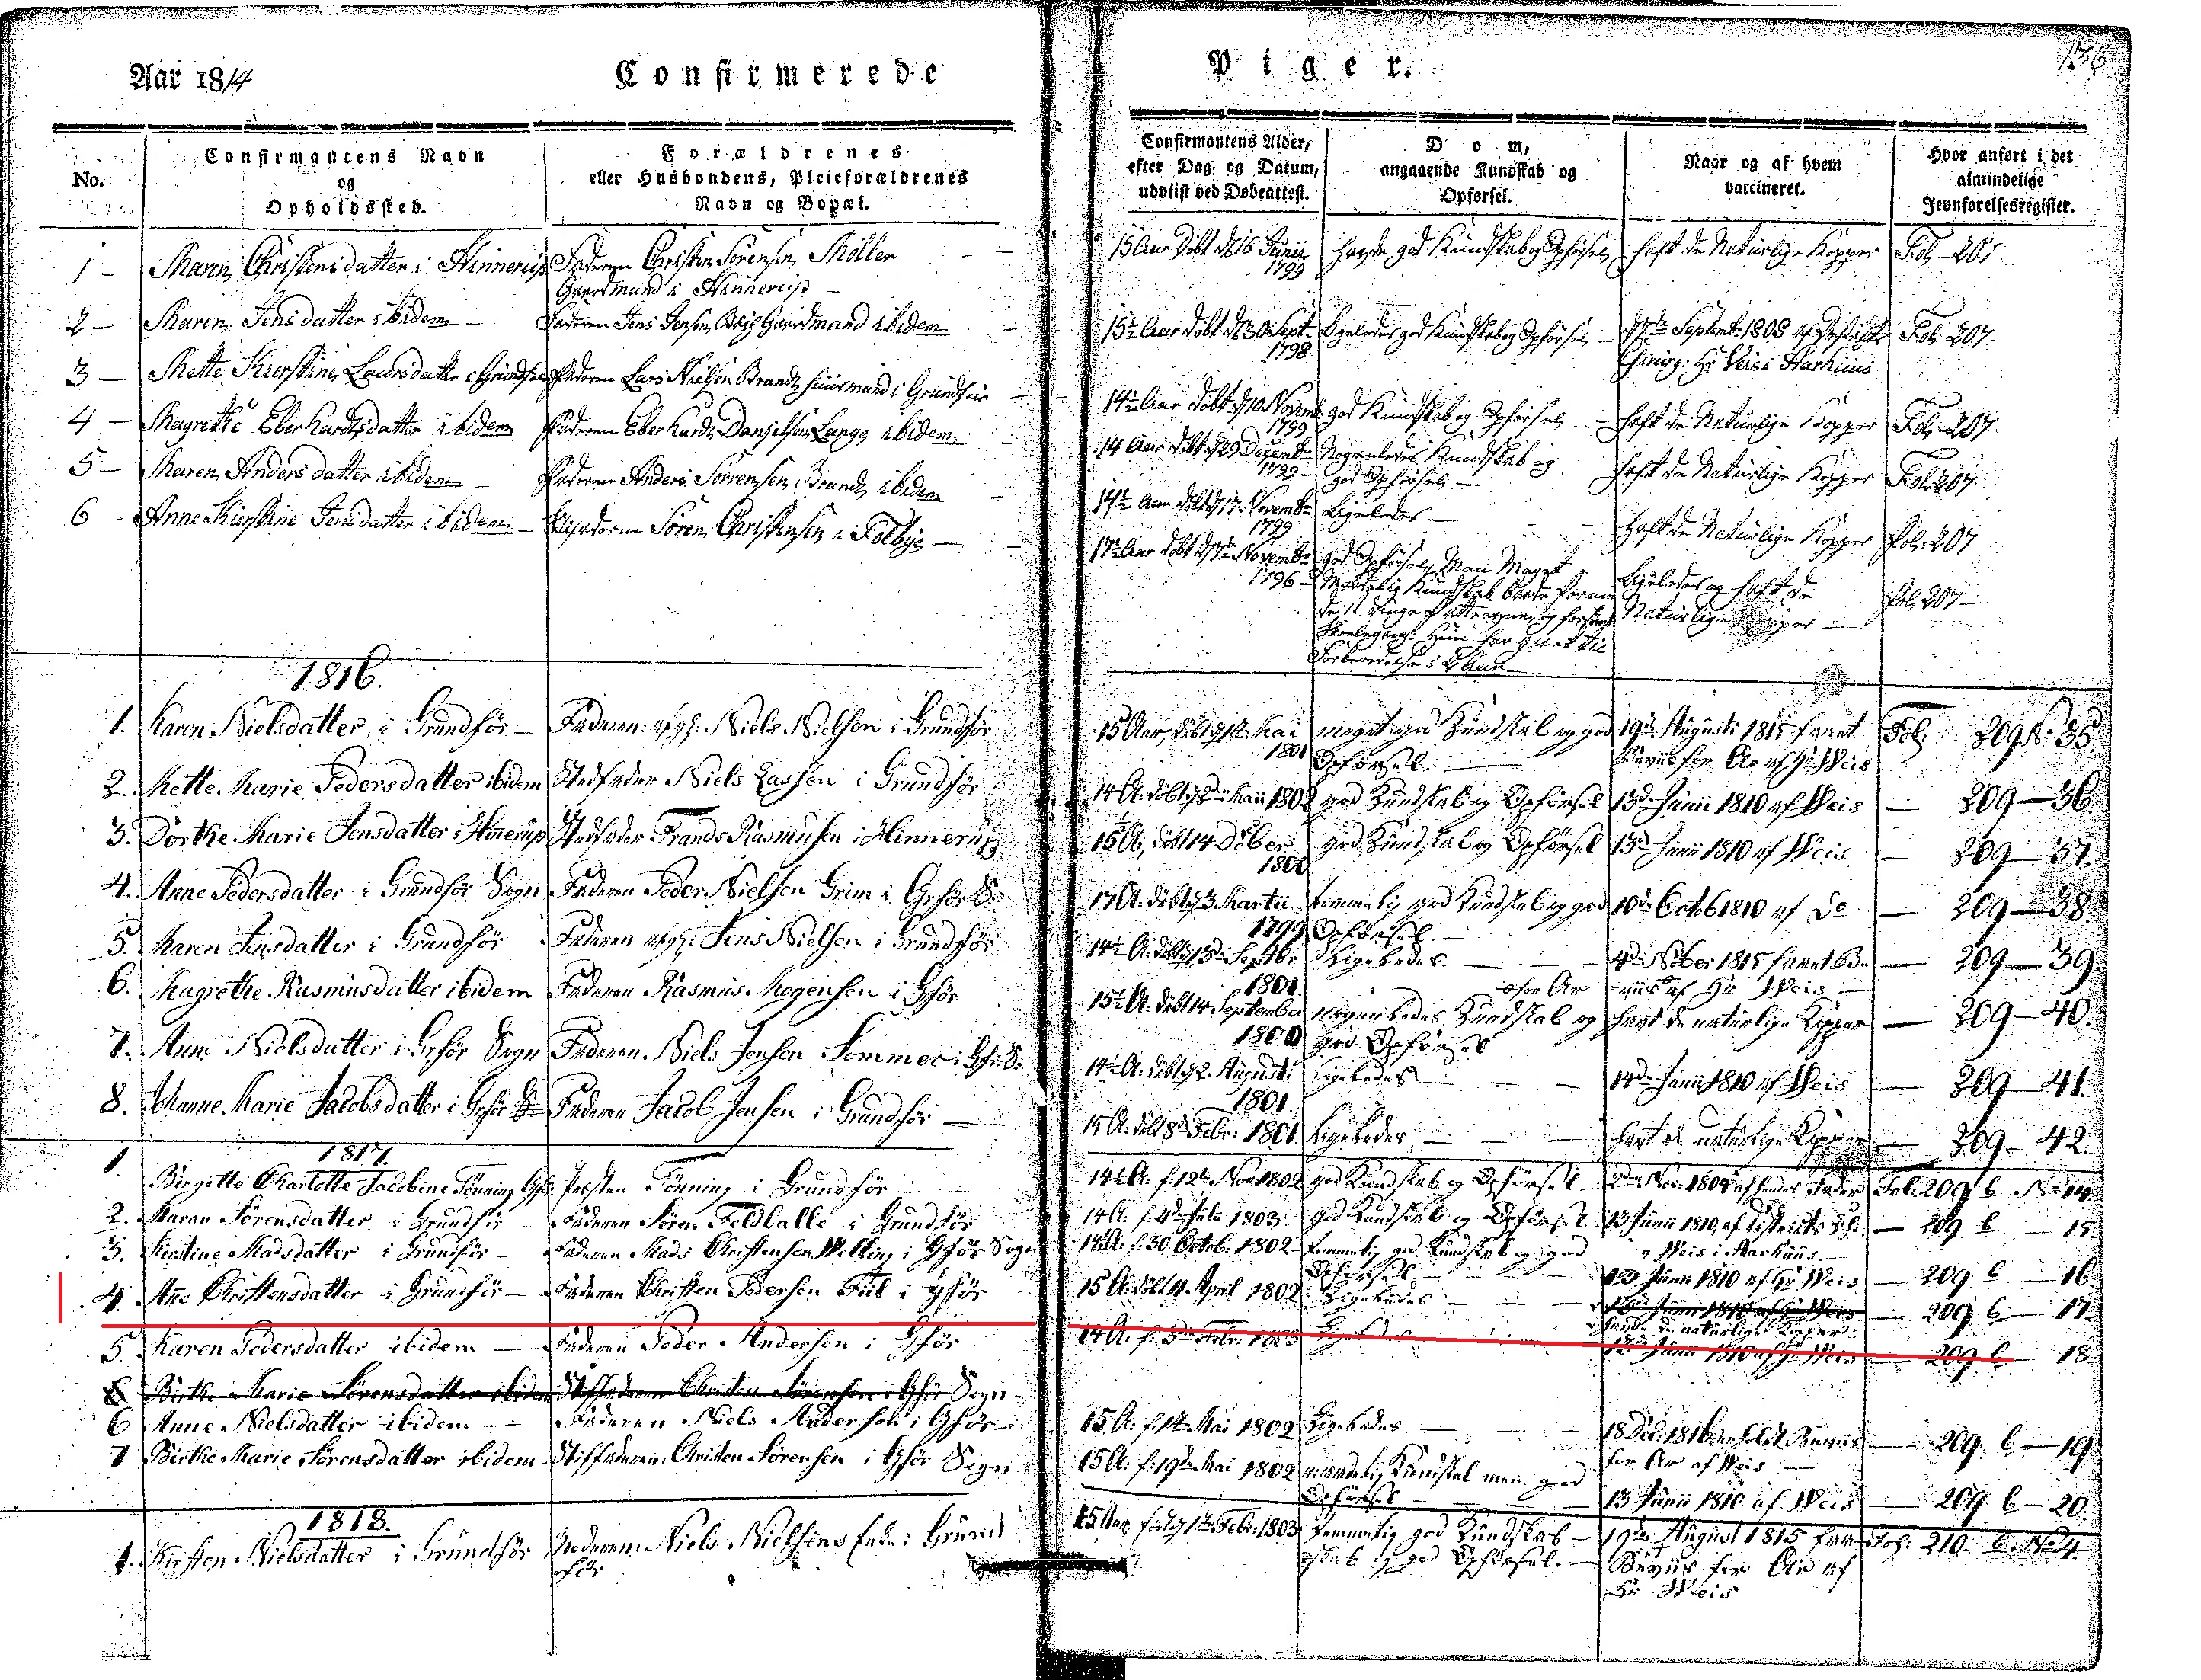 Aar 1814
Confirmerede
Piger.
136
No.
Confirmantens Navn
og
Opholdssted.
Forældrenes
eller Husbondens, Pleieforældrenes
Navn og Bopæl.
Confirmantens Alder,
efter Dag og Datum,
udviist ved Døbeattest.
Dom,
angaaende Kundskab og
Opførsel.
Naar og af hvem
vaccineret.
Hvor anført i det
almindelige
Jevnførelsesregister.
1 – Maren Christensdatter i Hinnerup Faderen Christen Sørensen Møller
Gaardmand i Hinnerup
15 Aar Døbt d 16 Junii
1799
god Kundskab og Opførsel haft de Naturlige Kopper Fol – 207
2 – Maren Jensdatter ibidem – Faderen Jens Jensen Gaardmand ibidem
15½ Aar døbt d 30 Sept.
1798
Ligeledes god Kundskab og Opførsel Septemb: 1808 af
Chirurg: Hr Veis i Aarhuus
Fol. 207
3 – Mette Kierstine Laursdatter i Grundføer Faderen Lars Nielsen Brandt Huusmand i Grundføer
14½ Aar døbt d 10 Novemb.
1799
god Kundskab og Opførsel haft de Naturlige Kopper Fol. 207
4 – Magrethe Eberhardtsdatter ibidem Faderen Eberhardt Danielsen Lange ibidem
14 Aar døbt d 29 Decembr
1799
Nogenledes Kundskab og
god Opførsel
haft de Naturlige Kopper Fol. 207
5 – Maren Andersdatter ibidem – Faderen Anders Sørrensen Brandt ibidem
14½ Aar døbt d 17 Novembr
1799
Ligeledes – haft de Naturlige Kopper Fol. 207
6 – Anne Kierstine Jensdatter ibidem – Søren Christensen i Folbye –
17½ Aar døbt d Novembr
1796
god Opførsel Men Meget
Maadelig Kundskab
Hun har gaaet til
Forberedelse i
Ligeledes og haft de
Naturlige Kopper –
Fol. 207 –
1816.
1. Karen Nielsdatter i Grundför – Faderen: Niels Nielsen i Grundför
15 Aar, döbt d 1te Mai
1801
meget god Kundskab og god
Opførsel.
19de Augusti 1815 havt
Beviis for Ar af Hr Weis
Fol: 209 No 35
2. Mette Marie Pedersdatter ibidem Stedfader Niels Lassen i Grundför
14 A. döbt d Maii 1802 god Kundskab og Opförsel 13de Junii 1810 af Weis – 209 – 36
3. Dorthe Marie Jensdatter i Hinnerup Stedfader Frands Rasmusen i Hinnerup
15 A., döbt 14 Dcber
1800
god Kundskab og Opförsel 13de Junii 1810 af Weis – 209 – 37.
4. Anne Pedersdatter i Grundför Sogn Faderen Peder Nielsen Grim i Grför S:
17 A. döbt d 3 Martii
1799
temmelig god Kundskab og god
Opförsel. –
10de Octob 1810 af Do – 209 – 38
5. Maren Jensdatter i Grundför Faderen Jens Nielsen i Grundför
14½ A. döbt d 13de Septbr
1801
Ligeledes. – 4de Nober 1815 havt Be-
viis for Ar af Hr Weis –
– 209 – 39
6. Magrethe Rasmusdatter ibidem Faderen Rasmus Mogensen i Gför
15½ A. döbt 14 September
1800
nogenledes Kundskab og
god Opförsel
havt de naturlige Kopper – 209 – 40.
7. Anne Nielsdatter i Grför Sogn Faderen Niels Jensen Sommer i Gför S:
14½ A. döbt d 2 Augusti
1801
Ligeledes – 14de Junii 1810 af Weis – 209 – 41.
8. Johanne Marie Jacobsdatter i Grför Faderen Jacob Jensen i Grundför –
15 A. döbt 8de Febr: 1801. Ligeledes – havt de naturlige Kopper – 209 – 42.
1817.
1 Birgitte Charlotte Jacobine Tönning Gför Præsten Tönning i Grundför
14½ A. f. 12te Nov. 1802 god Kundskab og Opförsel – Nov. 1804 af hendes Fader Fol: 209 b No 14
2. Maran Sörensdatter i Grundför – Faderen Sören Feldballe i Grundför
14 A. f. 4de Julii 1803. god Kundskab og Opförsel 13 Junii 1810, af Districts Ch.
Weis i Aarhuus. –
– 209 b – 15
3. Kirstine Madsdatter i Grundför – Faderen Mads Christensen Welling i Gför Sogn
14½ A: f. 30 Octob. 1802 temmelig god Kundskab og god
Opförsel –
13 Junii 1810 af Hr Weis – 209 b – 16
4. Ane Christensdatter i Grundför – Faderen Christen Pedersen Fiil i Gför
15 A. döbt 4 April 1802 Ligeledes – 13de Junii 1810 af Hr Weis
havde de naturlige Kopper.
– 209 b – 17
5. Karen Pedersdatter ibidem – Faderen Peder Andersen i Gför
14 A: f. 3de Febr. 1803 Ligeledes 13de Junii 1810 af Hr Weis – 209 b – 18
6 Birthe Marie Sörensdatter ibidem Stiffaderen Christen Sörensen i Gför Sogn
6 Anne Nielsdatter ibidem – Faderen Niels Andersen i Gför
15 A. f. 14 Mai 1802 Ligeledes – 18 Dec. 1816 anholdt Beviis
for Ar af Weis –
– 209 b – 19
7 Birthe Marie Sörensdatter ibidem Stiffaderen: Christen Sörensen i Gför Sogn
15 A: f. 19de Mai 1802 maadelig Kundskab men god
Opförsel –
13 Junii 1810 af Weis – 209 b – 20.
1818.
1. Kirsten Nielsdatter i Grundför Moderen: Niels Nielsens Enke i Grund
för
15 Aar, föd d 1te Febr: 1803 temmelig god Kundskab –
skab og god Opförsel. –
19de August 1815 havt
Beviis for Ar af
Hr Weis
Fol: 210 b. No 4.